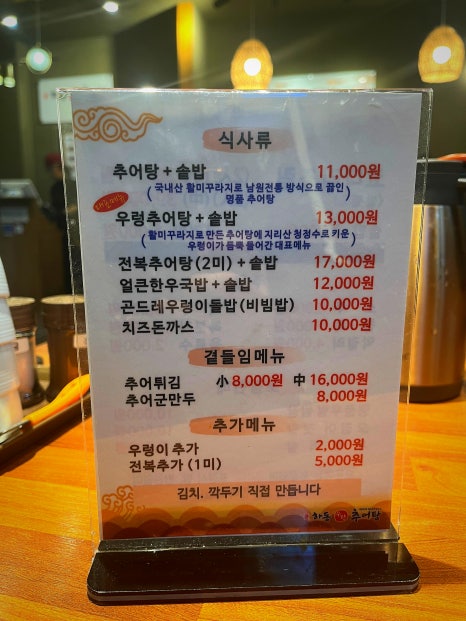 식사류
추어탕 + 솥밥 11,000원
( 국내산 활미꾸라지로 남원전통 방식으로 끓인
명품 추어탕 )
대표메뉴
우렁추어탕 + 솥밥 13,000원
( 활미꾸라지로 만든 추어탕에 지리산 청정수로 키운
우렁이가 듬뿍 들어간 대표메뉴 )
전복추어탕(2미) + 솥밥 17,000원
얼큰한우국밥 + 솥밥 12,000원
곤드레우렁이돌밥(비빔밥) 10,000원
치즈돈까스 10,000원
곁들임메뉴
추어튀김 小 8,000원 中 16,000원
추어군만두 8,000원
추가메뉴
우렁이 추가 2,000원
전복추가 (1미) 5,000원
김치. 깍두기 직접 만듭니다
추어탕